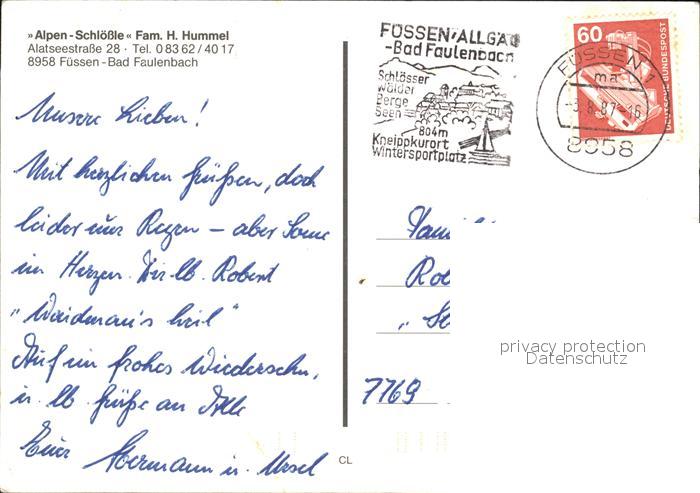 »Alpen-Schlößle« Fam. H. Hummel
Alatseestraße 28 · Tel. 0 83 62 / 40 17
8958 Füssen-Bad Faulenbach
Unsere Lieben!
Mit herzlichen Grüßen, doch
leider nur Regen – aber Sonne
im Herzen. Dir lb. Robert
"Waidman's heil"
Auf ein frohes Wiedersehn,
u. lb. Grüße an Alle
Euer Hermann u. Ursel
CL
FÜSSEN/ALLGÄU
-Bad Faulenbach
Schlösser
Wälder
Berge
Seen
804m
Kneippkurort
Wintersportplatz
FÜSSEN 1
ma
-3.8.87-16
8958
60
DEUTSCHE BUNDESPOST
Fam
Rob
7769
privacy protection
Datenschutz